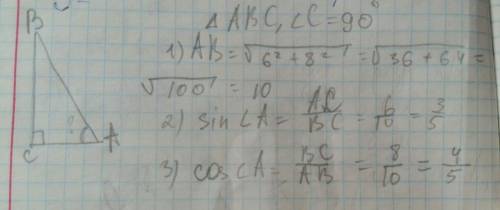 B
C
A
?
△ABC, ∠C = 90°
1) AB = √(6² + 8²) = √(36 + 64) =
√100 = 10
2) sin∠A = AC/BC = 6/10 = 3/5
3) cos∠A = BC/AB = 8/10 = 4/5